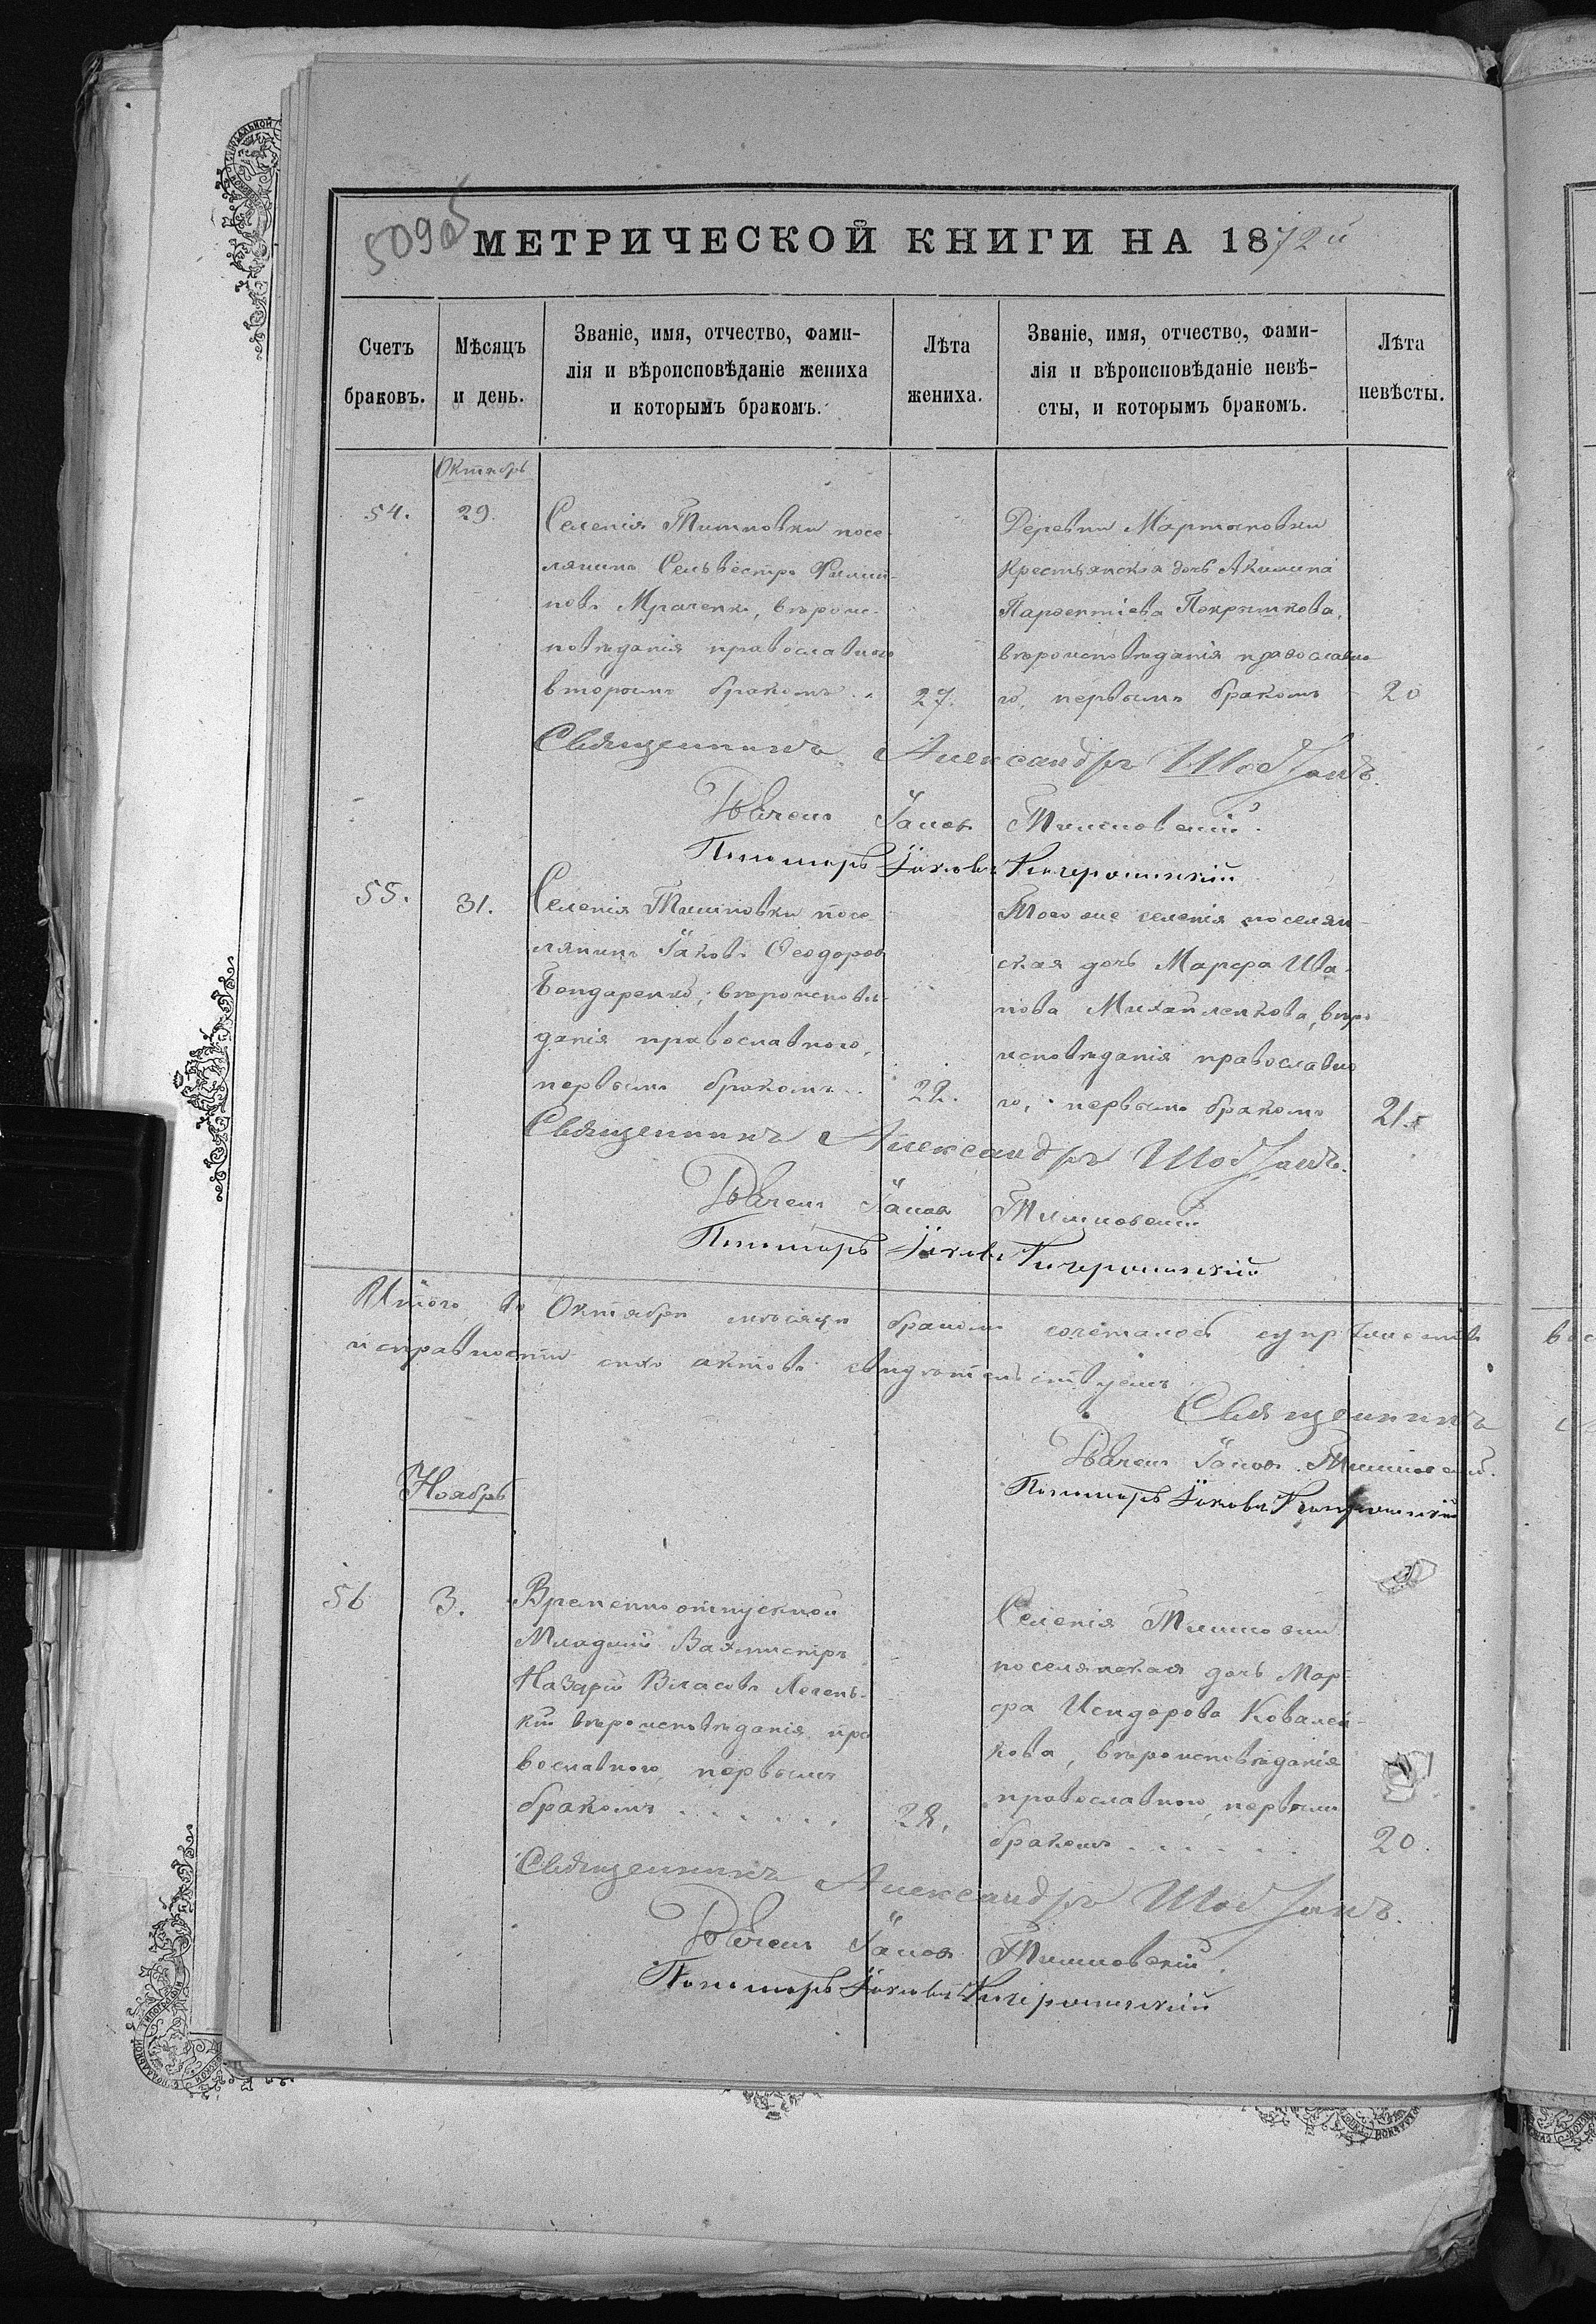 509об
МЕТРИЧЕСКОЙ КНИГИ НА 1872й
Счетъ браковъ.
Мѣсяцъ и день.
Званіе, имя, отчество, фами-
лія и вѣроисповѣданіе жениха
и которымъ бракомъ.
Лѣта жениха.
Званіе, имя, отчество, фами-
лія и вѣроисповѣданіе невѣ-
сты, и которымъ бракомъ.
Лѣта невѣсты.
Октябрь
54.
29.
Селенія Тишковки посе-
лянинъ Сельвестръ Филип-
повъ Мраченко, вѣроис-
повѣданія православнаго
вторымъ бракомъ..
27.
Деревни Мартыновки
крестьянская дочь Акилина
Парфентіева Покрышкова,
вѣроисповѣданія православна-
го, первымъ бракомъ
20
Священникъ Александръ
Дьячекъ Іаковъ Тишковскій.
Пономарь Іаковъ
55.
31.
Селенія Тишковки посе-
лянинъ Іаковъ Ѳеодоровъ
Бондаренко, вѣроисповѣ-
данія православнаго,
первымъ бракомъ..
22.
Того же селенія поселян-
ская дочь Марфа Ива-
нова Михайленкова, вѣро-
исповѣданія православна-
го, первымъ бракомъ
21.
Священникъ Александръ
Дьячекъ Іаковъ Тишковскій
Пономарь Іаковъ
Итого въ Октябрѣ мѣсяцѣ бракомъ сочеталось супружествъ
исправности сихъ актовъ свидѣтельствуемъ
Священникъ
Дьячекъ Іаковъ Тишковскій.
Пономарь Іаковъ
Ноябрь
56
3.
Временно отпускной
Младшій Вахмистръ
Назарій Власовъ Легень-
кій вѣроисповѣданія пра-
вославнаго, первымъ
бракомъ . . . . . .
28.
Селенія Тишковки
поселянская дочь Мар-
фа Исидорова Ковален-
кова, вѣроисповѣданія
православнаго, первымъ
бракомъ . . . . . .
20.
Священникъ Александръ
Дьячекъ Іаковъ Тишковскій.
Пономарь Іаковъ